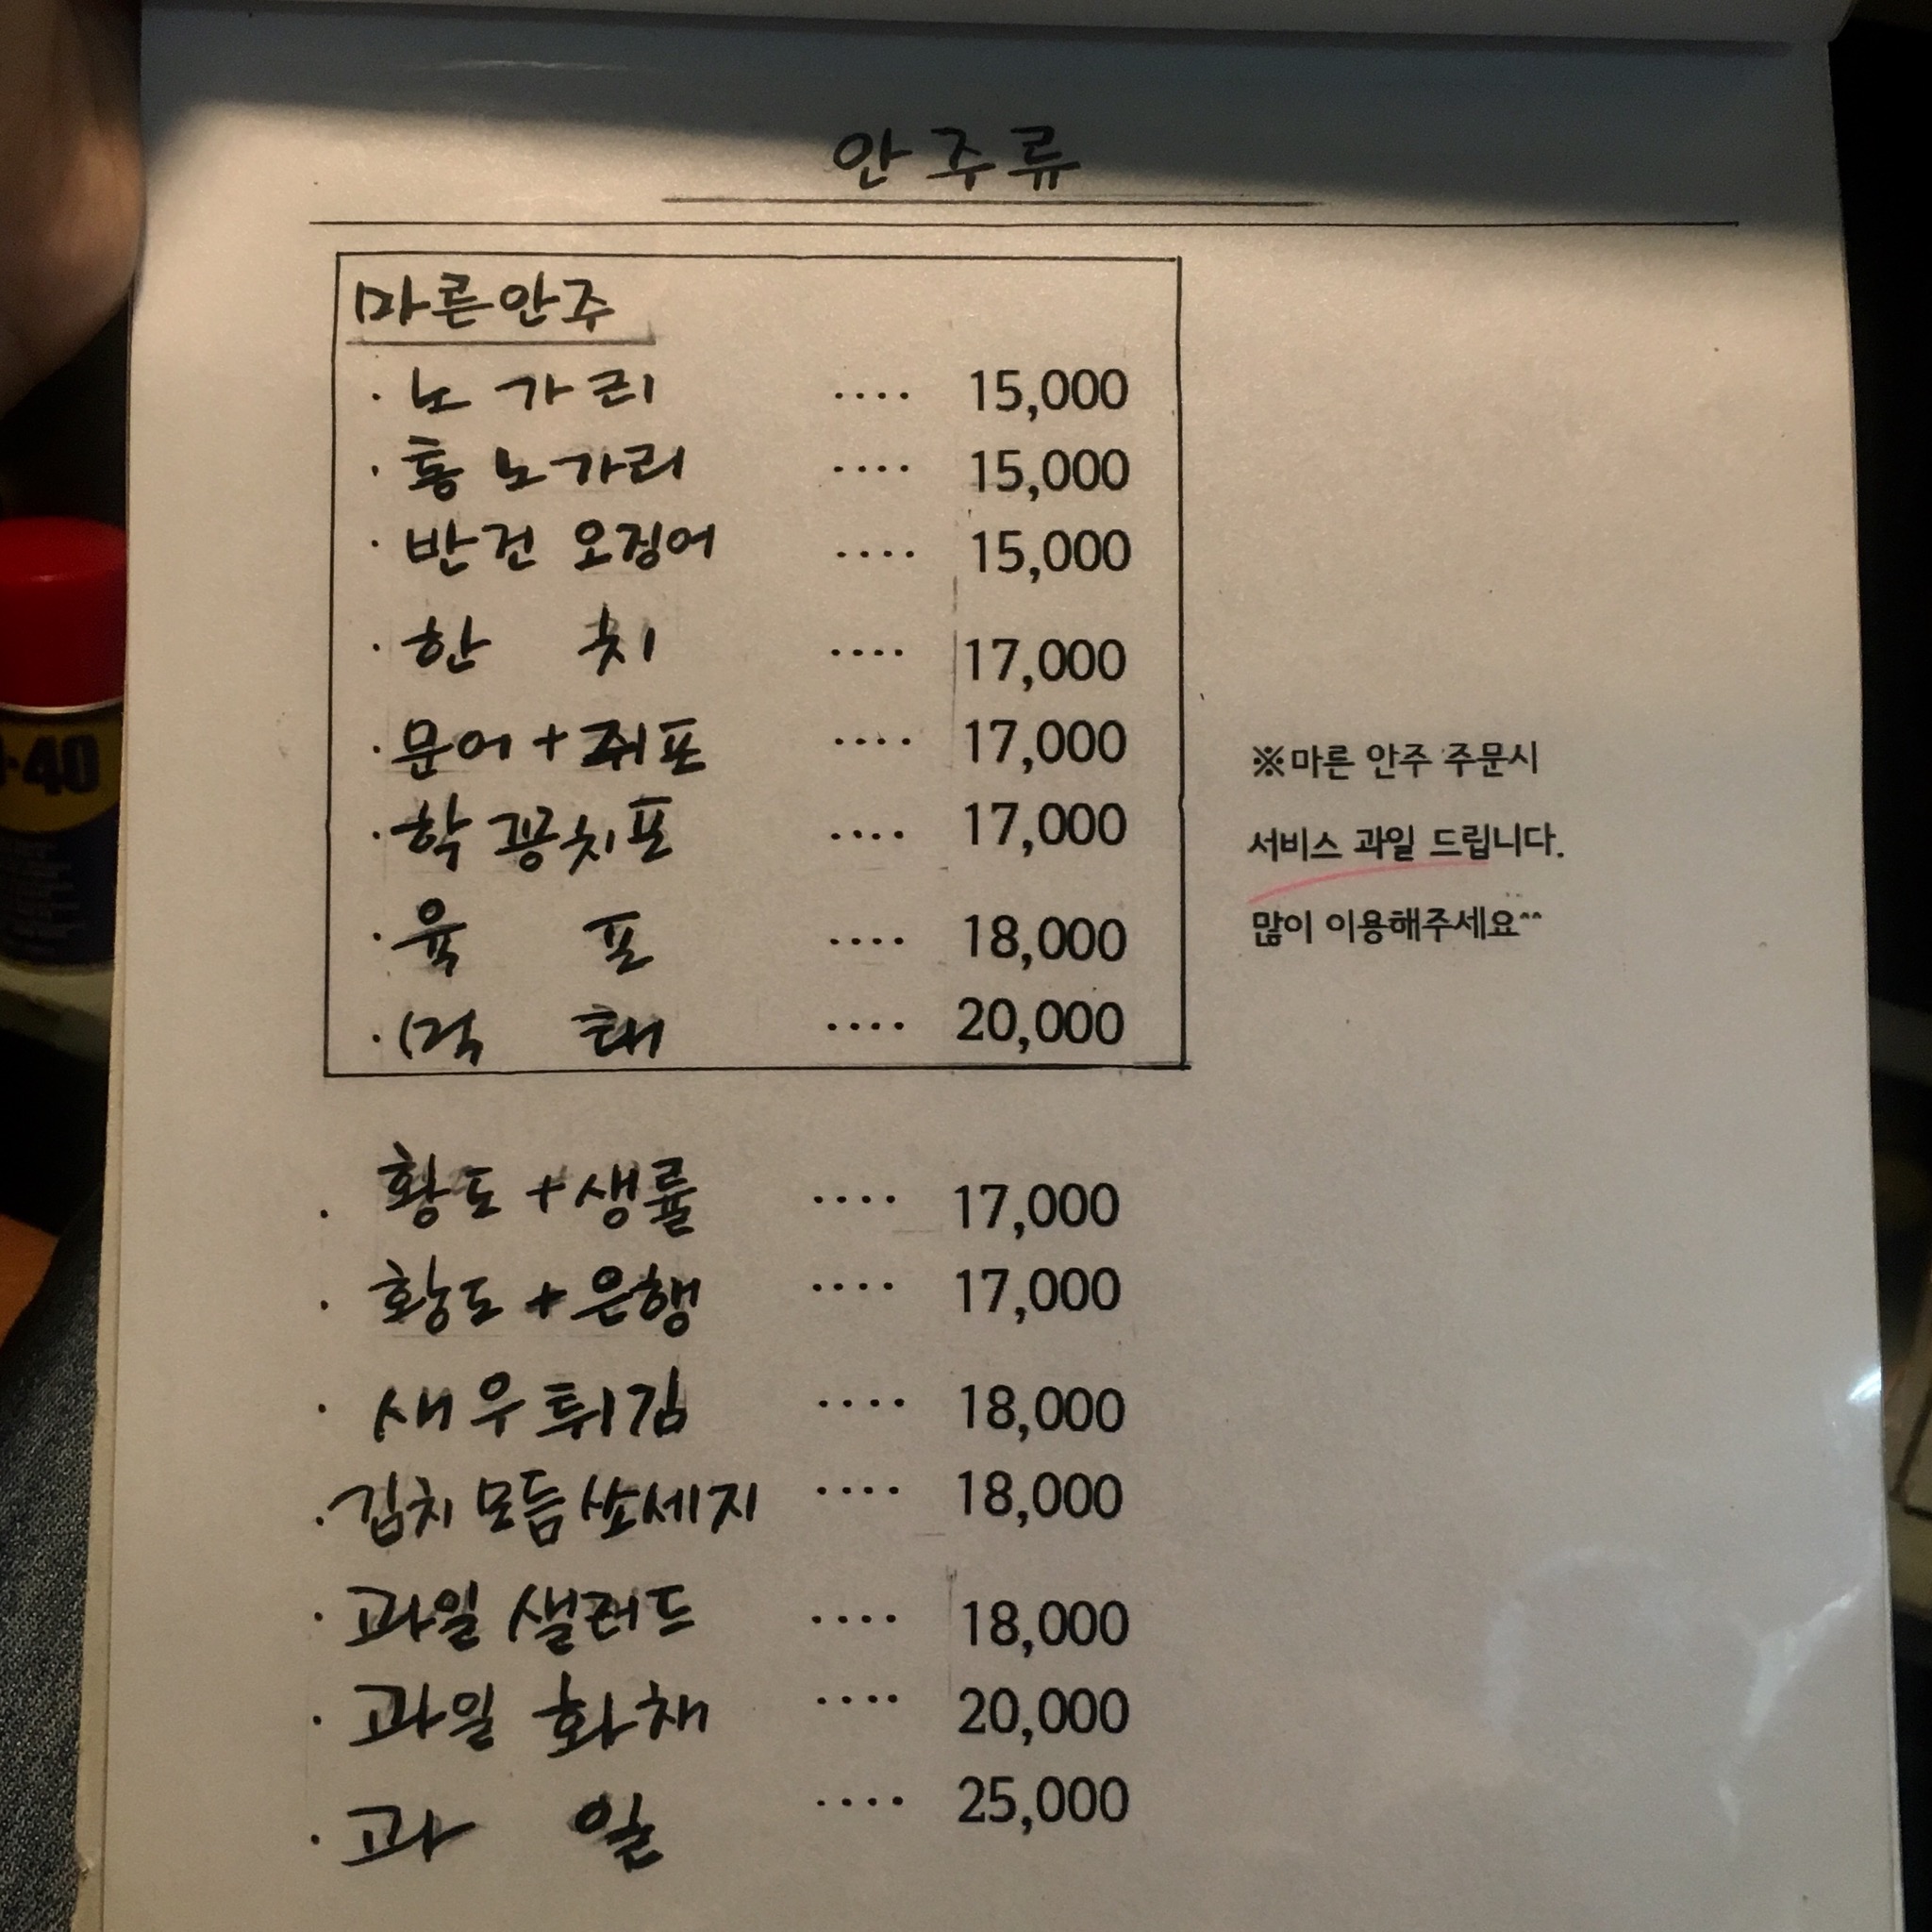 안주류
마른안주
· 노가리 .... 15,000
· 통 노가리 .... 15,000
· 반건 오징어 .... 15,000
· 한 치 .... 17,000
· 문어+쥐포 .... 17,000
· 학꽁치포 .... 17,000
· 육 포 .... 18,000
· 먹 태 .... 20,000
※마른 안주 주문시
서비스 과일 드립니다.
많이 이용해주세요^^
· 황도+생률 .... 17,000
· 황도+은행 .... 17,000
· 새우튀김 .... 18,000
· 김치 모듬 쏘세지 .... 18,000
· 과일 샐러드 .... 18,000
· 과일 화채 .... 20,000
· 과 일 .... 25,000
-40